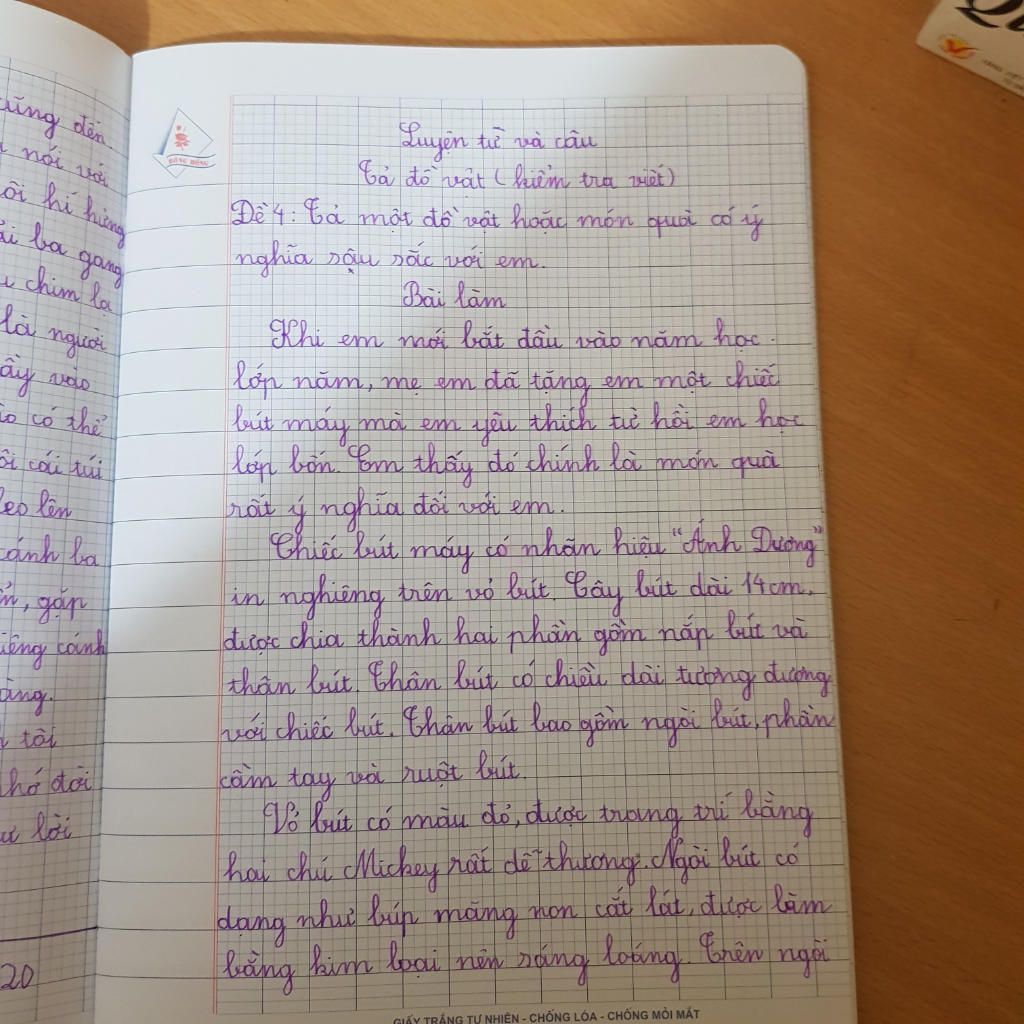 ũng đến
nói với
ôi hí hửng
ba gang
chim lạ
là người
ấy vào
có thể
ôi cái túi
leo lên
cánh ba
gấp
cánh
tôi
đời
lời
20
HỒNG
Luyện từ và câu
Tả đồ vật (kiểm tra viết)
Đề 4: Tả một đồ vật hoặc món quà có ý
nghĩa sâu sắc với em.
Bài làm
Khi em mới bắt đầu vào năm học
lớp năm, mẹ em đã tặng em một chiếc
bút máy mà em yêu thích từ hồi em học
lớp bốn. Em thấy đó chính là món quà
rất ý nghĩa đối với em.
Chiếc bút máy có nhãn hiệu "Ánh Dương"
in nghiêng trên vỏ bút. Cây bút dài 14cm,
được chia thành hai phần gồm nắp bút và
thân bút. Thân bút có chiều dài tương đương
với chiếc bút. Thân bút bao gồm ngòi bút, phần
cầm tay và ruột bút.
Vỏ bút có màu đỏ, được trang trí bằng
hai chú Mickey rất dễ thương. Ngòi bút có
dạng như búp măng non cắt lát, được làm
bằng kim loại nên sáng loáng. Trên ngòi
GIẤY TRẮNG TỰ NHIÊN - CHỐNG LÓA - CHỐNG MỎI MẮT